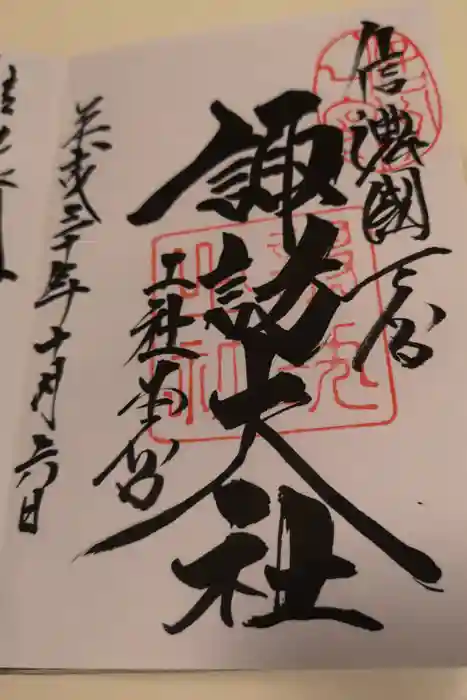 信濃國一宮
諏訪大社
上社本宮
平成三十年十月六日